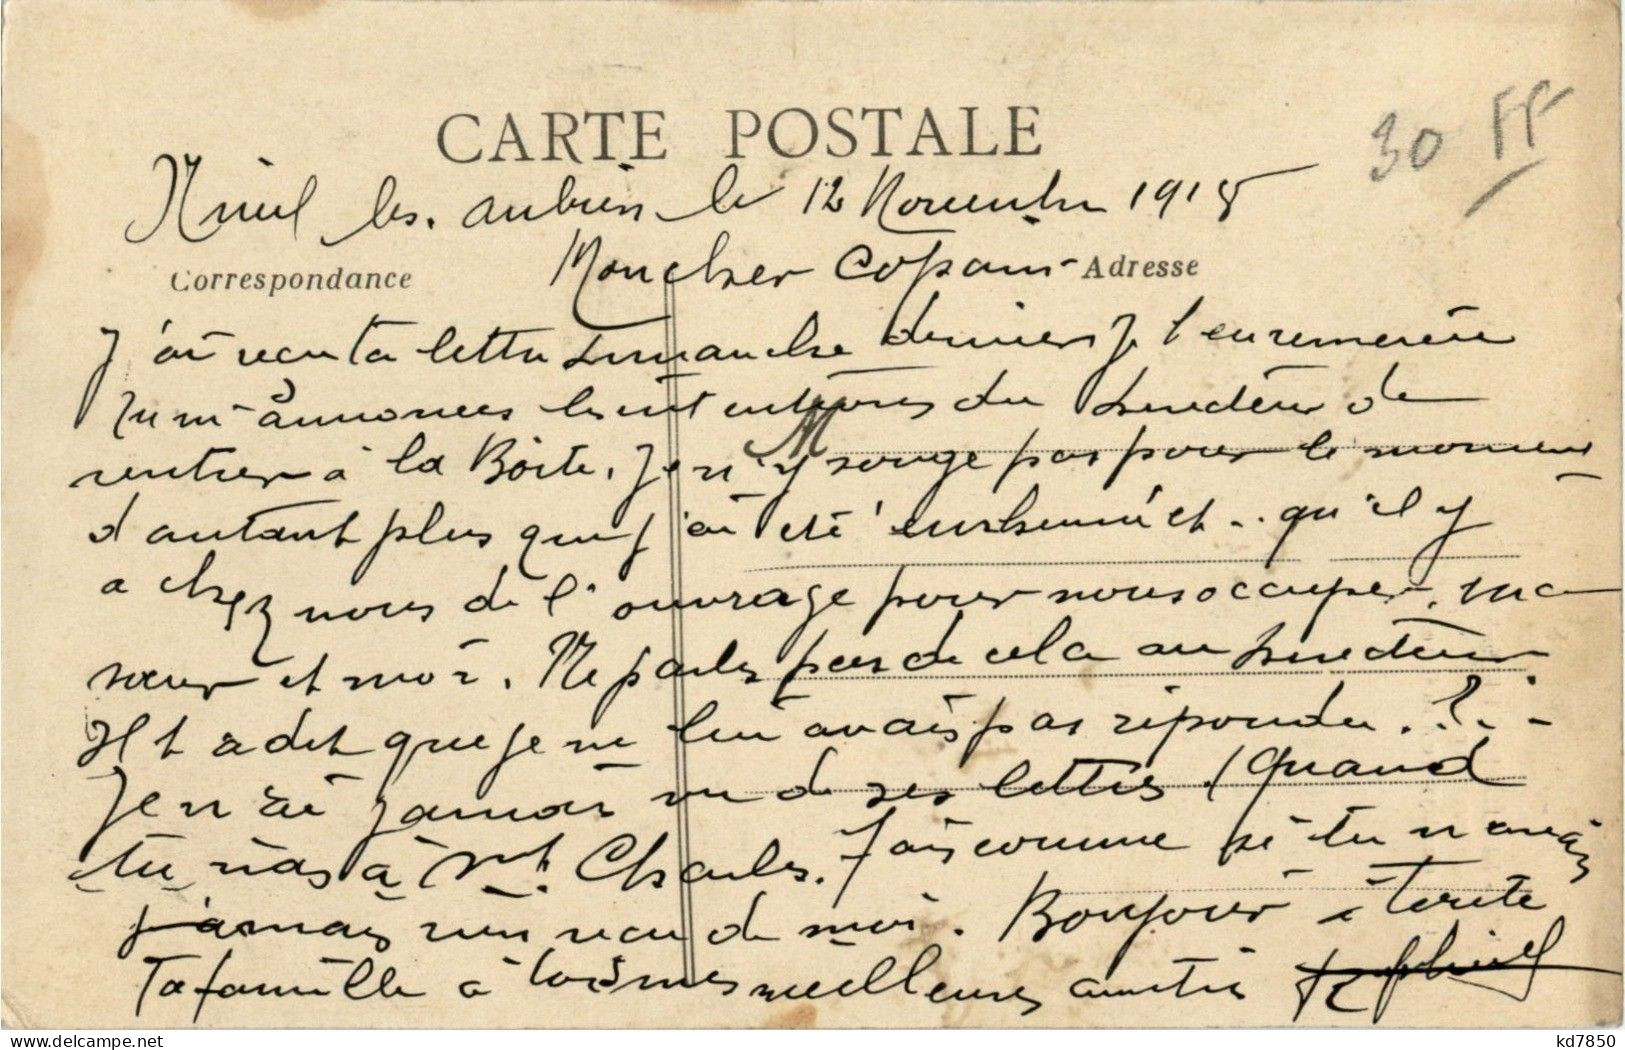 CARTE POSTALE
30 FF
Nieul les. aubiers le 12 Novembre 1918
Correspondance
Mon cher Copain Adresse
J'ai recu ta lettre Dimanche dernier Je t'en remercie
Tu m'annonces les intentions du Directeur de
rentrer à la Boite. Je n'y songe pas pour le moment
d'autant plus que j'ai été enrhumé et .. qu'il y
a chez nous de l'ouvrage pour nous occuper. ma
sœur et moi. Ne parles pas de cela au Directeur
Il t'a dit que je ne lui avais pas répondu. ? . -
Je n'ai jamais vu de ses lettres. Quand
tu iras à Mt. Charles. Fais comme si tu n'avais
jamais rien recu de moi. Bonjour à toute
Ta famille à toi mes meilleures amitiés
kd7850